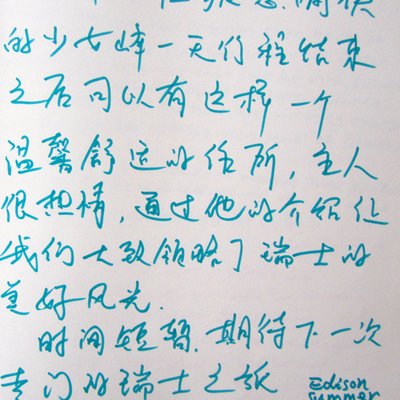 愉快
的少女峰一天行程结束
之后可以有这样一个
温馨舒适的住所,主人
很热情,通过他的介绍让
我们大致领略了瑞士的
美好风光.
时间短暂.期待下一次
专门的瑞士之旅
Edison
Summer